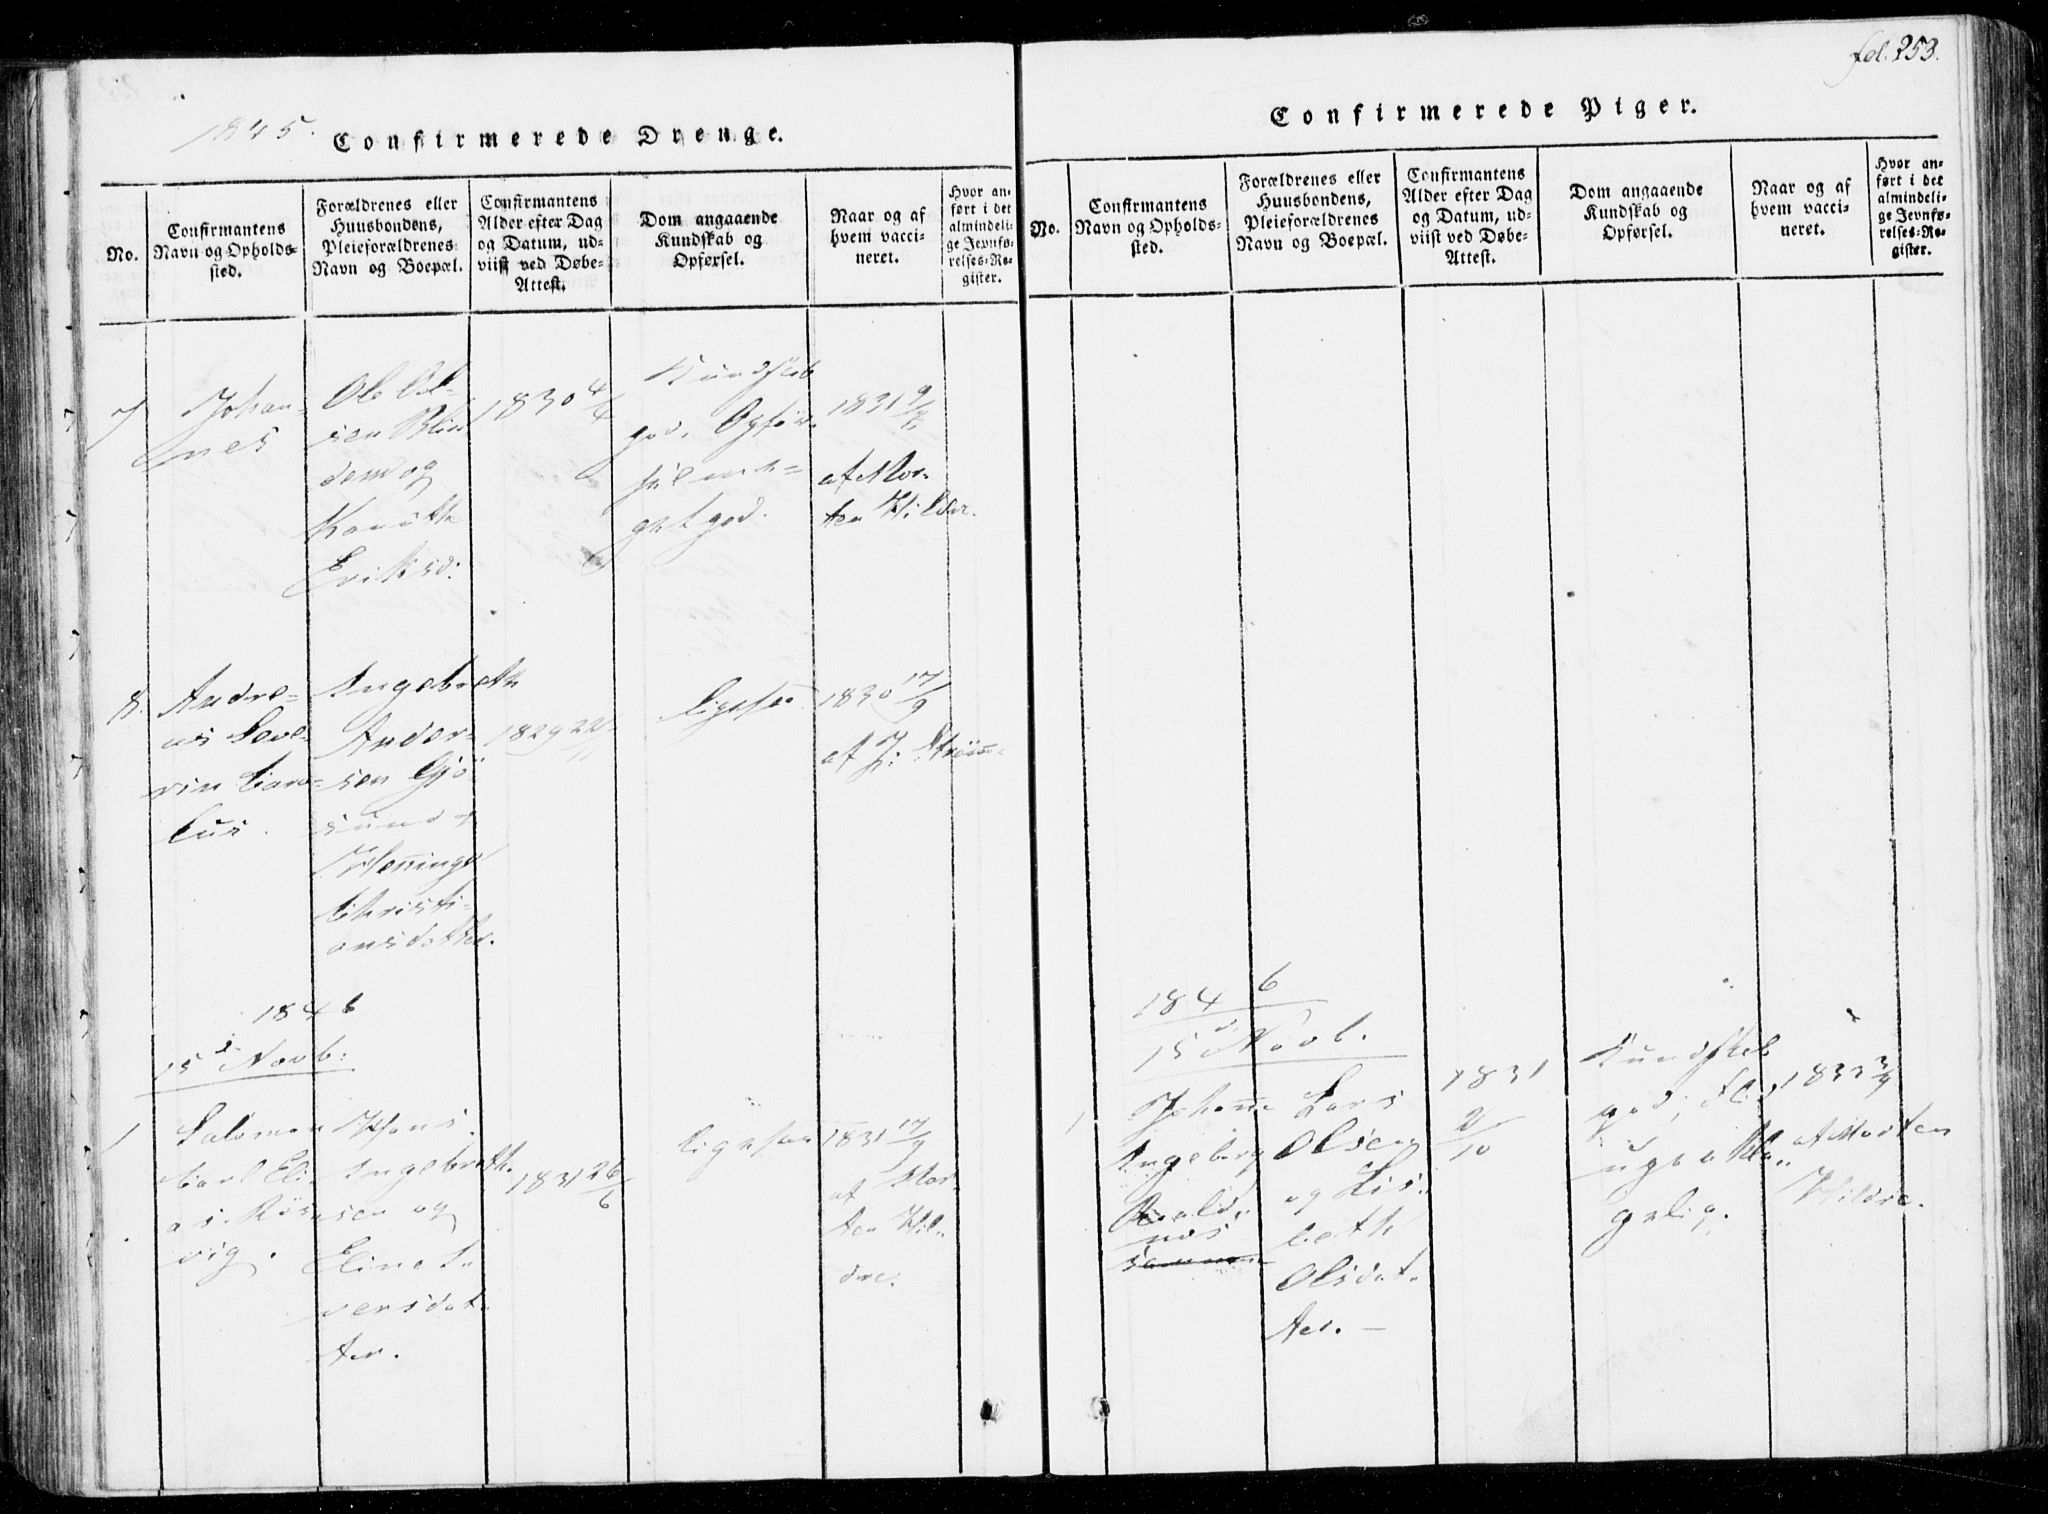 fol. 253.
1845.
Confirmerede Drenge.
No.
Confirmantens
Navn og Opholds-
sted.
Forældrenes eller
Huusbondens,
Pleieforældrenes
Navn og Boepæl.
Confirmantens
Alder efter Dag
og Datum, ud-
viist ved Døbe-
Attest.
Dom angaaende
Kundskab og
Opførsel.
Naar og af
hvem vacci-
neret.
Hvor an-
ført i det
almindeli-
ge Jevnfø-
relses-Re-
gister.
7
Johan-
nes
Ole Ol-
sen Blin
dem og
Eriksd:
1830 4/4
Kundskab
god, Opfør-
sel me-
get god.
1831 9/
af Mor-
ten Hildre.
8.
Andre-
as Seve-
rin Caro-
lus.
Ingebreth
Ander-
sen Gjö
sund
Henninge
Christi-
ansdatter.
1829 22/11
ligesaa
1830 17/9
af J.
1846
15d Novb:
1
Salomon
Carl Eli-
as Rös-
vig.
Hans
Ingebreth-
sen og
Eline I-
versdat-
ter.
1831 26/6
ligesaa
1831 17/9
af Mor-
ten Hil-
dre.
Confirmerede Piger.
No.
Confirmantens
Navn og Opholds-
sted.
Forældrenes eller
Huusbondens,
Pleieforældrenes
Navn og Boepæl.
Confirmantens
Alder efter Dag
og Datum, ud-
viist ved Døbe-
Attest.
Dom angaaende
Kundskab og
Opførsel.
Naar og af
hvem vacci-
neret.
Hvor an-
ført i det
almindeli-
ge Jevnfø-
relses-Re-
gister.
1846
15d Novb.
1
Johanne
Ingeborg
Lars
Olsen
og Lis-
beth
Olsdat-
ter. —
1831
2/10
Kundskab
god, Flid
upaakla-
gelig.
1833 3/9
af Morten
Hildre.